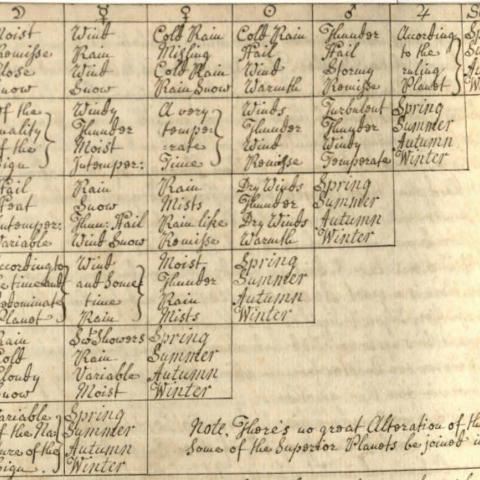 ☽ ☿ ♀ ☉ ♂ ♃
Moist Wind Cold Rain Cold Rain Thunder According
Remisse Rain Misling Hail Hail to the
Close Wind Cold Rain Wind Stormy ruling
Snow Snow Rain Snow Warmth Remisse Planet
of the Windy A very Winds Turbulent Spring
quality Thunder temper Thunder Thunder Summer
of the Moist -rate Wind Windy Autumn
Sign Intemper: Time Remisse Temperate Winter
Hail Rain Rain Dry Winds Spring
Heat Snow Mists Thunder Summer
Intemper: Thun: Hail Rain like Dry Winds Autumn
Variable Wind Snow Remisse Warmth Winter
According to Wind Moist Spring
the time and and Some Thunder Summer
predominate time Rain Autumn
Planet Rain Mists Winter
Rain Sw: Showers Spring
Cold Rain Summer
Cloudy Variable Autumn
Snow Moist Winter
Variable Spring
of the Na Summer
ture of the Autumn
Sign. Winter
Note, There's no great Alteration of th
Some of the Superior Planets be joined i